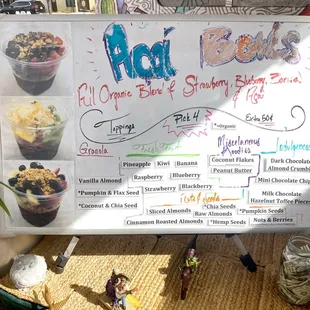 Açaí Bowls
Full Organic Blend of Strawberry, Blueberry, Banana
& Açaí
Toppings
Pick 4
Extra 50¢
*=Organic
Granola
Miscellaneous
Goodies
Indulgences
Pineapple Kiwi Banana
Raspberry Blueberry
Strawberry Blackberry
Vanilla Almond
*Pumpkin & Flax Seed
*Coconut & Chia Seed
Coconut Flakes
Peanut Butter
Dark Chocolate
Almond Crumbl
Mini Chocolate Chip
Milk Chocolate
Hazelnut Toffee Pieces
Sliced Almonds *Chia Seeds *Pumpkin Seeds
Raw Almonds
Cinnamon Roasted Almonds *Hemp Seeds Nuts & Berries